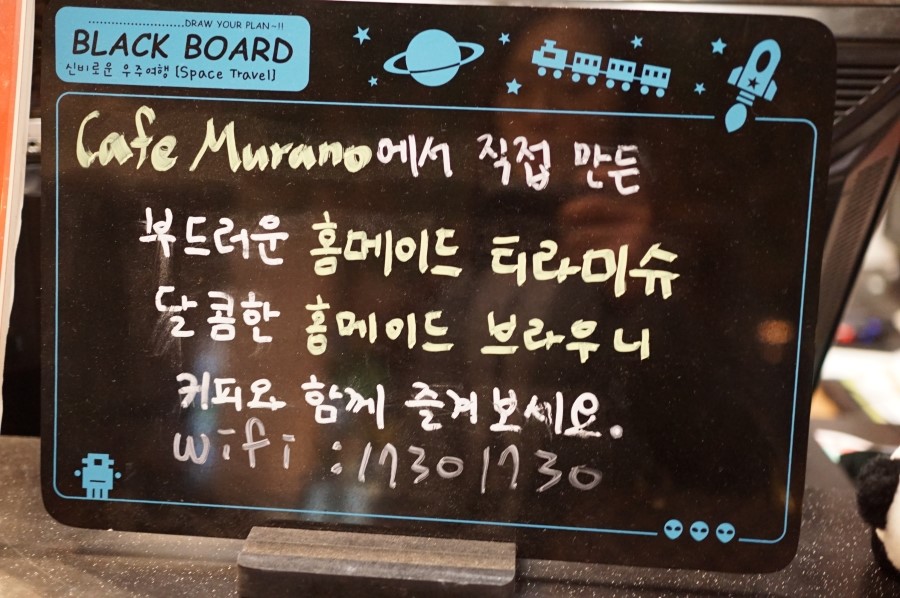 DRAW YOUR PLAN~!!
BLACK BOARD
신비로운 우주여행 [Space Travel]
Cafe Murano에서 직접 만든
부드러운 홈메이드 티라미슈
달콤한 홈메이드 브라우니
커피와 함께 즐겨보세요.
wifi : 17301730